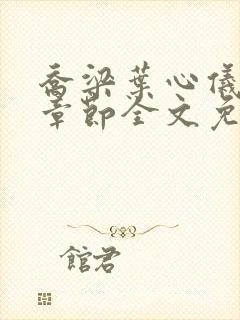 乔梁葉心儀
章節全文免
館君